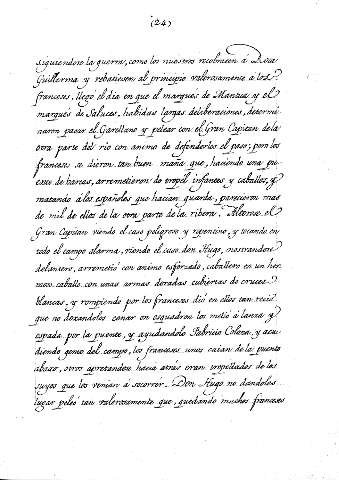 (24)
siguiendose la guerra, como los nuestros recobrasen á Roca
Guillerma y rebatiesen al principio valerosamente á los
franceses, llegó el dia en que el marques de Mantua y el
marqués de Saluces, habidas largas deliberaciones, determi-
naron pasar el Garellano y pelear con el Gran Capitan de la
otra parte del río con animo de defenderles el paso; pero los
franceses se dieron tan buen maña que, haciendo una pu-
ente de barcas, arremetieron de tropel infantes y caballos, y
matando á los españoles que hacian guarda, parecieron mas
de mil de ellos de la otra parte de la ribera. Alterose el
Gran Capitan viendo el caso peligroso y repentino, y tocando en
todo el campo alarma, viendo el caso don Hugo, mostrandose
delantero, arremetió con animo esforzado, caballero en un her
moso caballo con unas armas doradas cubiertas de cruces
blancas, y rompiendo por los franceses dió en ellos tan recio
que no dexandolos cerrar en esquadron los metió á lanza y
espada por la puente, y ayudandole Fabricio Colona, y acu
diendo gente del campo, los franceses unos caian de la puente
abaxo, otros apretandose hacia atras eran tropellados de los
suyos que los venian á socorrer. Don Hugo no dandoles
lugar peleó tan valerosamente que, quedando muchos franceses